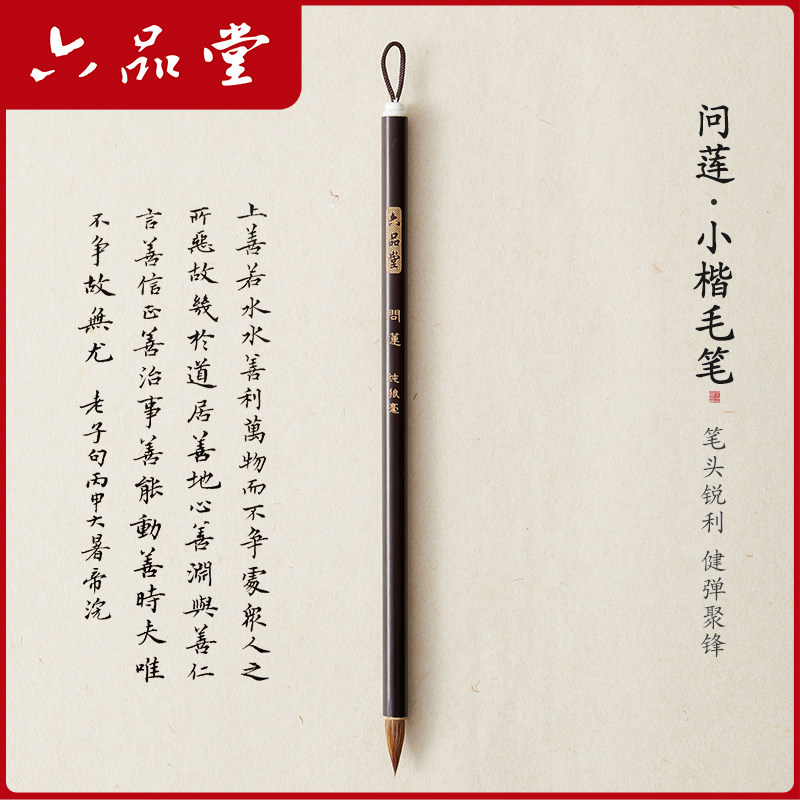 六品堂
问莲·小楷毛笔
笔头锐利 健弹聚锋
六品堂
問蓮
純狼毫
上善若水水善利萬物而不爭處眾人之
所惡故幾於道居善地心善淵與善仁
言善信正善治事善能動善時夫唯
不爭故無尤 老子句丙甲大暑帝浣